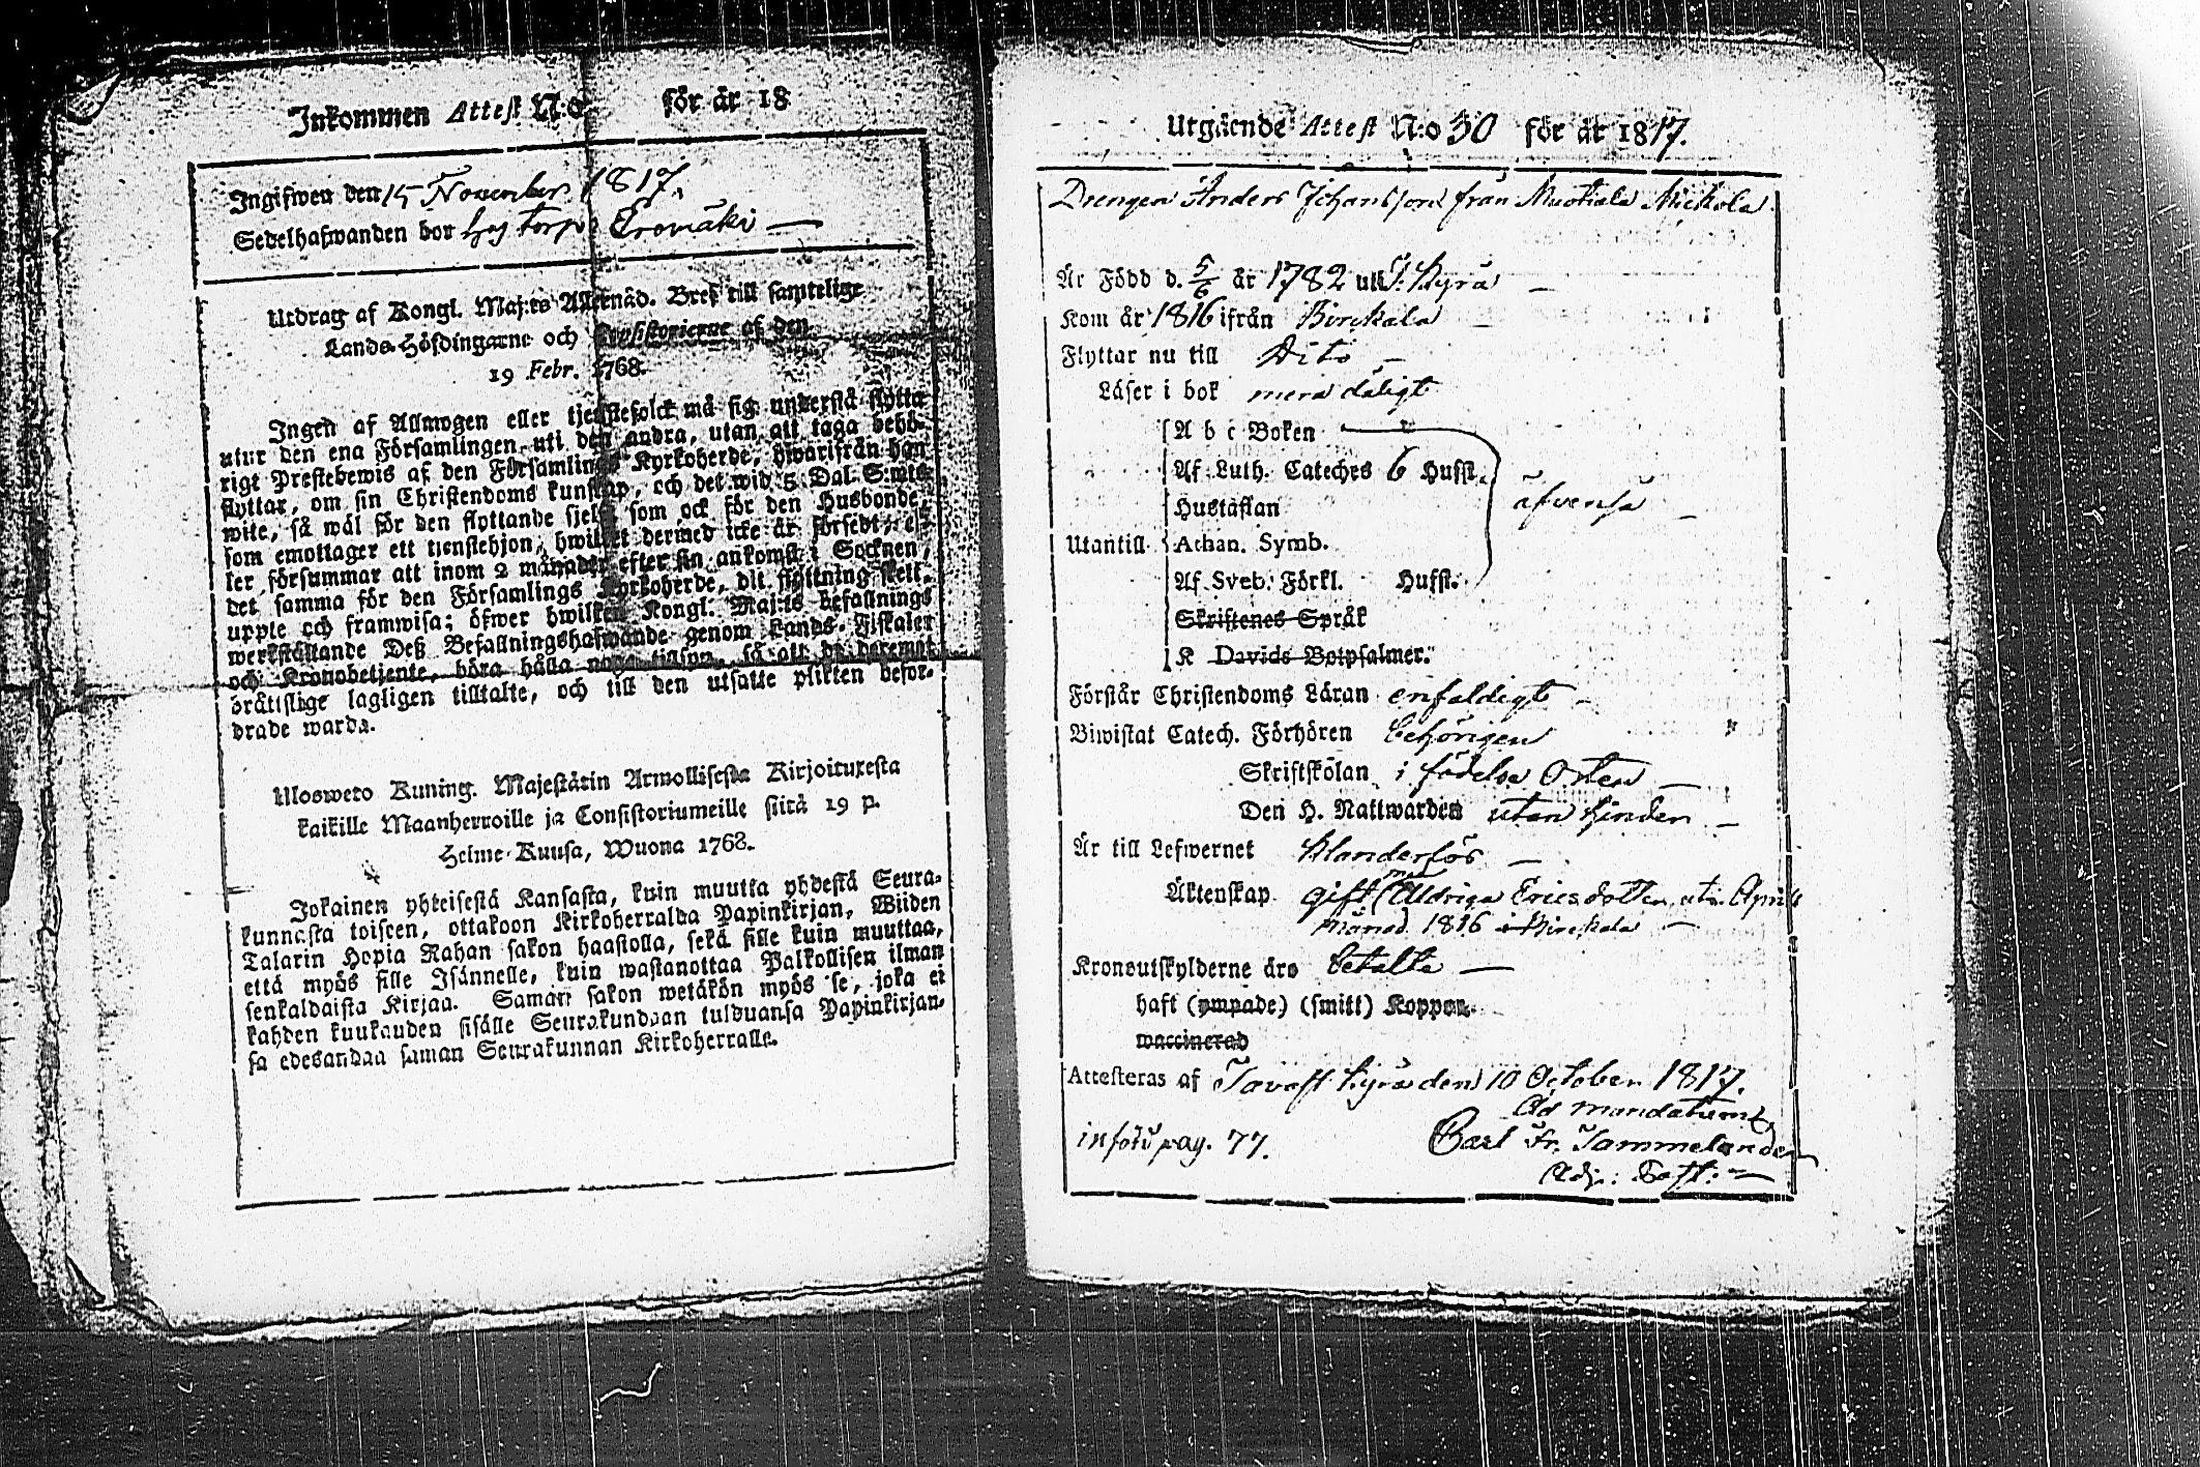 Inkommen Attest N:o för år 18
Ingifwen den 15 November 1817.
Sedelhafwanden bor hos torp Eromäki —
Utdrag af Kongl. Maj:ts Allernåd. Bref till samtelige
Lands-Höfdingarne och Consistorierne af den
19 Febr. 1768.
Ingen af Allmogen eller tjenstefolck må sig understå flytta
utur den ena Församlingen uti den andra, utan att taga behö-
rigt Prestebewis af den Församlings Kyrkoherde, hwarifrån han
flyttar, om sin Christendoms kunskap, och det wid 5 Dal. S:mts
wite, så wäl för den flyttande sielf som ock för den Husbonde,
som emottager ett tienstehjon, hwilket dermed icke är försedt; el-
ler försummar att inom 2 månader efter sin ankomst i Socknen,
det samma för den Församlings Kyrkoherde, dit flyttning skett,
uppte och framwisa; öfwer hwilken Kongl. Maj:ts befallnings
werkställande Deß Befallningshafwande genom Lands-Fiskaler
och Kronobetjente, böra hålla noga tilsyn, så att de deremot
brätslige lagligen tilltalte, och till den utsatte plikten befor-
drade warda.
Ulosweto Kuning. Majestätin Armollisesta Kirjoituxesta
kaikille Maanherroille ja Consistoriumeille siitä 19 p.
Helme-Kuusa, Wuona 1768.
Jokainen yhteisestä Kansasta, kuin muutta yhdestä Seura-
kunnasta toiseen, ottakoon Kirkoherralda Papinkirjan, Wiiden
Talarin Hopia Rahan sakon haastolla, sekä sille kuin muuttaa,
että myös sille Isännelle, kuin wastanottaa Palkollisen ilman
senkaldaista Kirjaa. Samän sakon wetäkön myös se, joka ei
kahden kuukauden sisälle Seurakundaan tulduansa Papinkirjan-
sa edesandaa saman Seurakunnan Kirkoherralle.
Utgäende Attest N:o 50 för år 1817.
Drengen Anders Johansson från Muotiala Mickola
Är Född d. 5/6 år 1782 uti T: Kyrö —
Kom år 1816 ifrån Birckala —
Flyttar nu till Dito —
Läser i bok mera dåligt
A b c Boken
Af Luth. Cateches 6 Hufst.
Hustaflan åfvenså —
Utantill Athan. Symb.
Af Sveb. Förkl. Hufst.
Skriftenes Språk
K Davids Botpsalmer.
Förstår Christendoms Läran enfaldigt —
Biwistat Catech. Förhören behörigen
Skriftskolan i födelse Orten —
Den H. Nattwarden utan hinder —
Är till Lefwernet klanderlös —
Äktenskap gift med Aldriga Ericsdotter uti April
månad 1816 i Birckala —
Kronoutskylderne äro betalte —
haft (ympade) (smitt) Koppor.
waccinerad
Attesteras af Tavast Kyro den 10 October 1817.
Ad mandatum
införd pag. 77. Carl Fr. Tammelander
Adj: Past: —